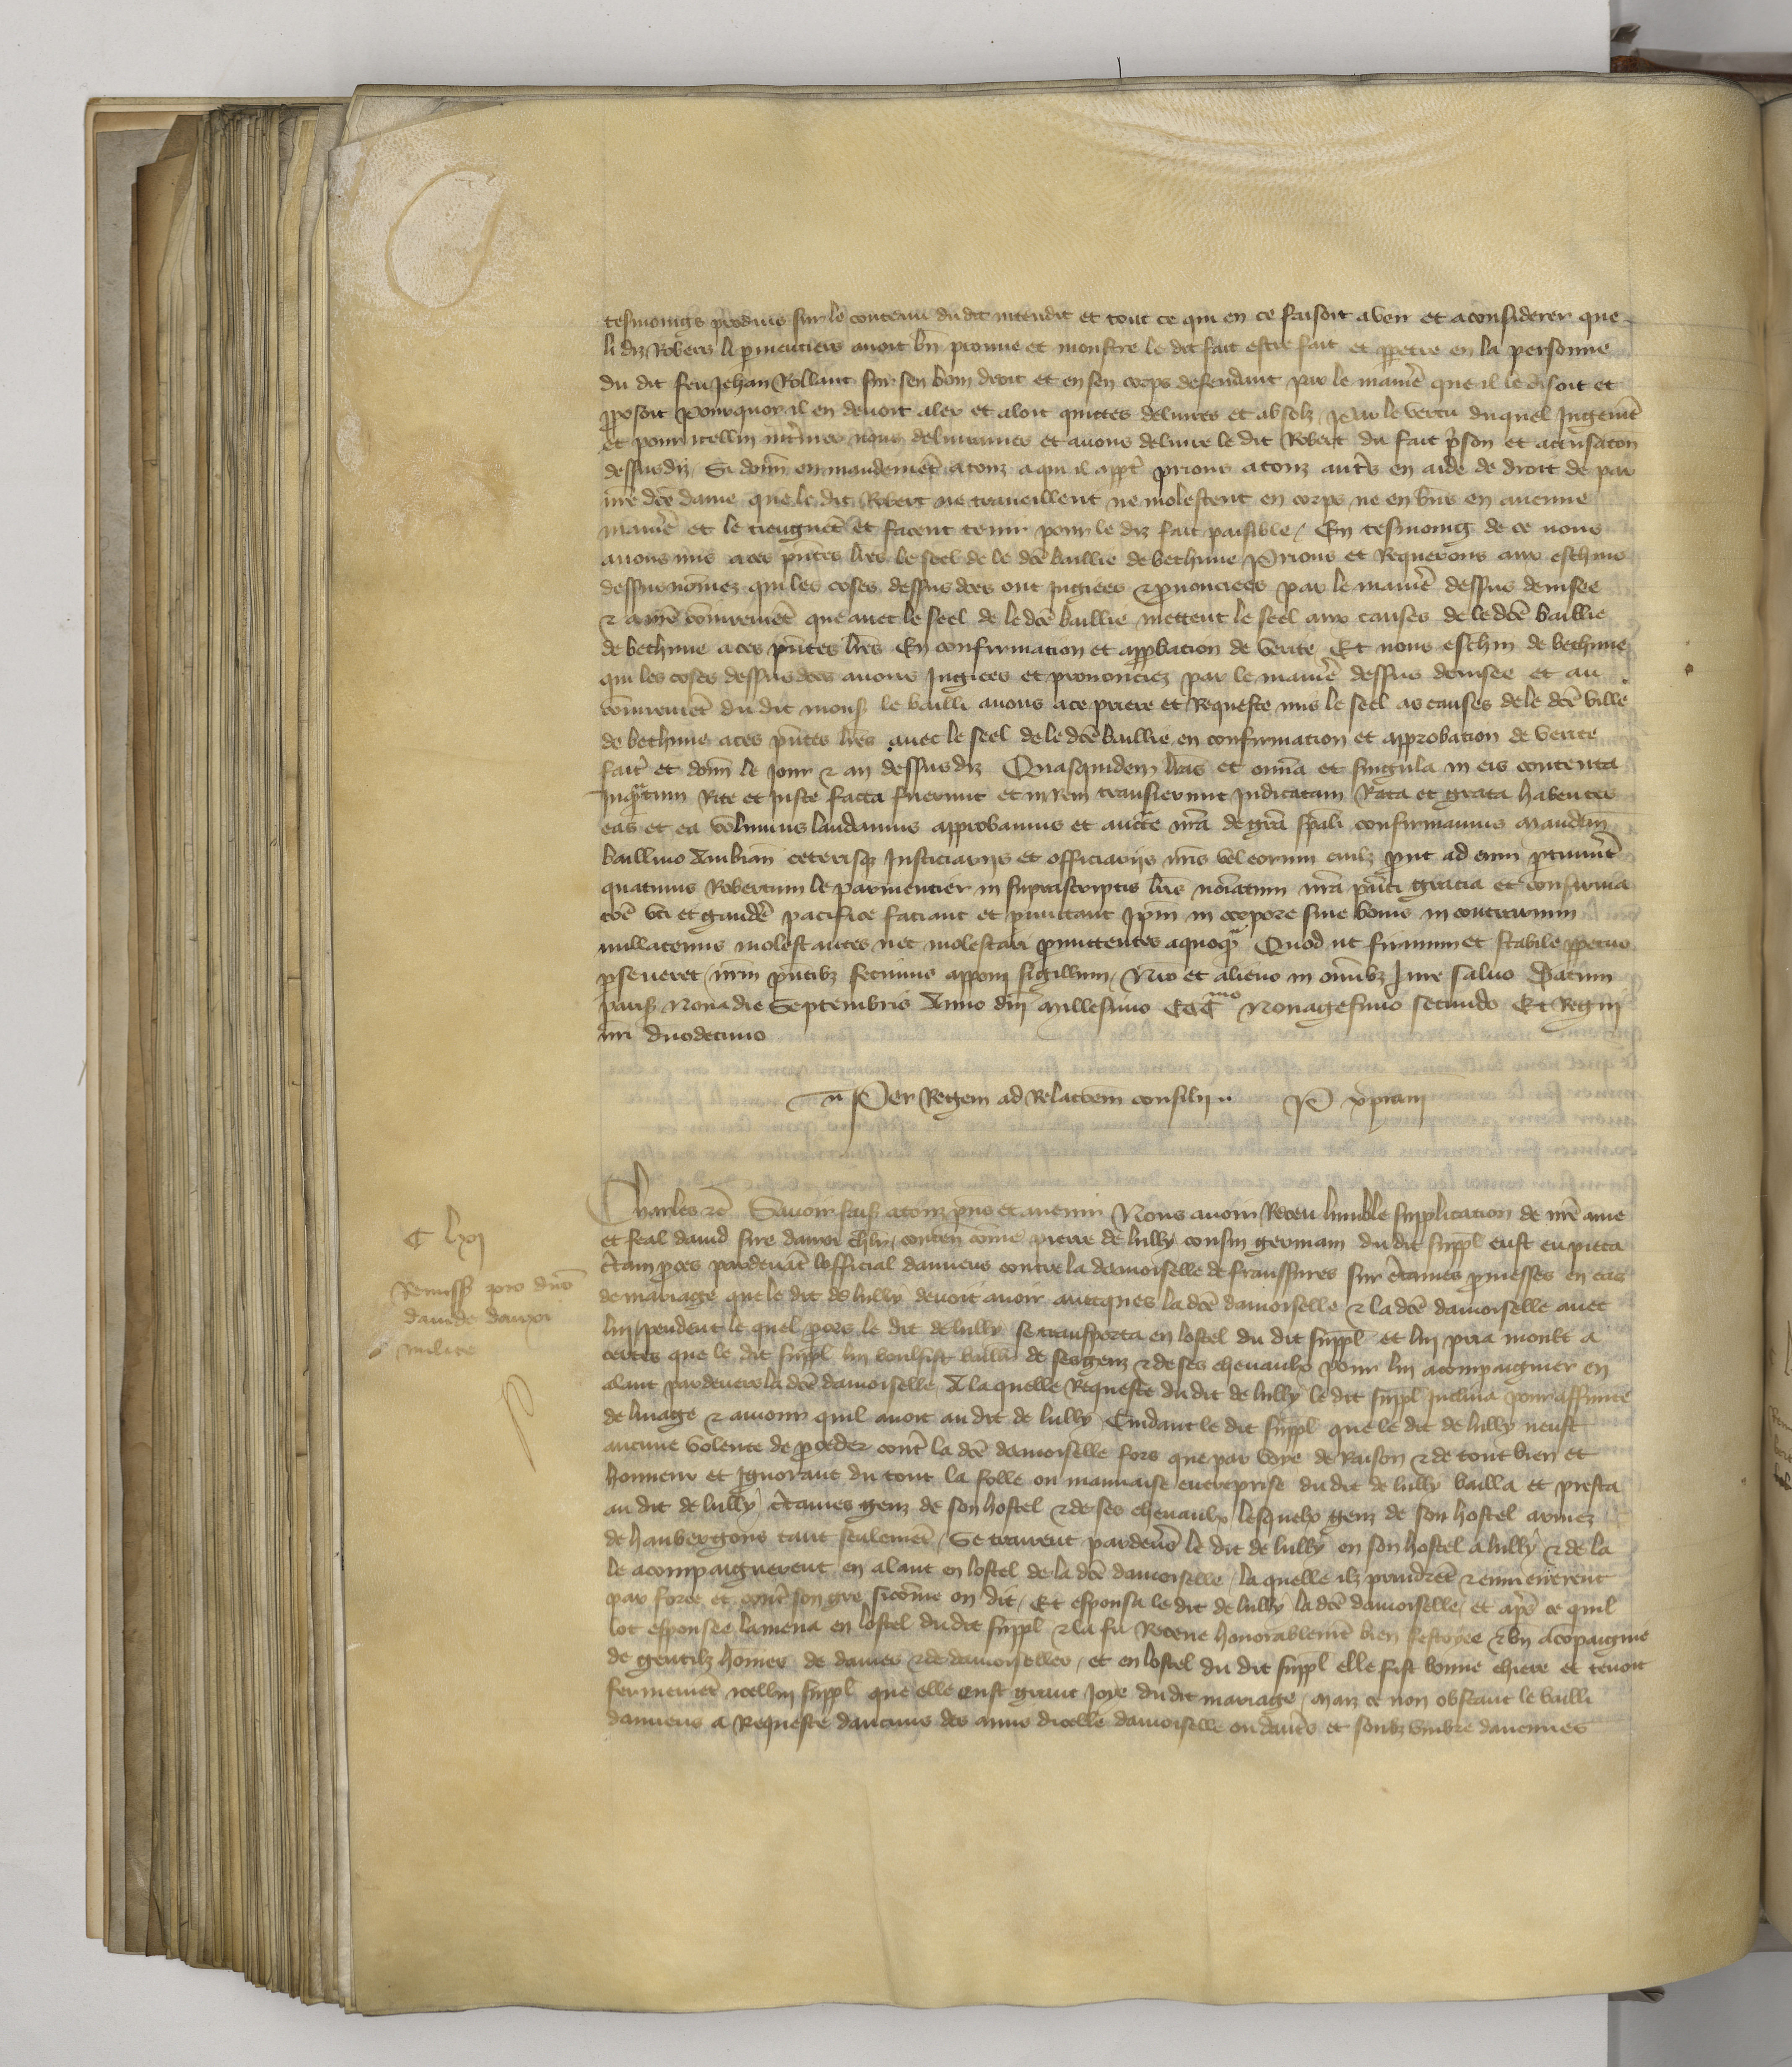 tesmoings produis sur le contenu du dit intendit et tout ce qui en ce faisoit a veir et a considerer que
li diz Robers li p̱mentiers avoit bn̄ prouve et monstre le dit fait estre fait et ꝑpetre en la personne
du dit feu Jehan Rollant sur sen bon droit et en sen corps defendant par le manie᷑ que il le disoit et
ꝓposoit Pourquoy il en devoit aler et aloit quittes delivres et absolz Par le vertu duquel Jugemēt
et pour icelluy nous delivrames et avons delivre le dit Robert du fait p̄son et accusacōn
dessusdiz Si donn̄ en mandemēt a touz a qui il app̄t prions a touz aut̄s en aide de droit de par
nr̄e dc̄e dame que le dit Robert ne traveillent ne molestent en corps ne en bn̄s en aucune
manie᷑ et le tiengnēt et facent tenir pour le diz fait paisible / En tesmoing de ce nous
avons mis a ces p̄ntes lr̄es le seel de le dc̄e baillie de bethune Prions et Requerons aux eschevins
dessus nōmez qui les coses dessus dc̄es ont Jugiees ⁊ pronunciees par le manie᷑ dessus devisee
⁊ a mē conivremēt que avec le seel de le dc̄e baillie mettent le seel aux causes de le dc̄e baillie
de bethune a ces p̄ntes lr̄es En confirmation et approbacion de verite Et nous eschin de bethune
qui les coses dessusdc̄es avons Jugiees et prononciez par le manie᷑ dessus devisee et au
conivremēt du dit monss̄ le bailli avons a ce priere et Requeste mis le seel as causes de le dc̄e ville
de bethune a ces p̄ntes lr̄es avec le seel de le dc̄e baillie en confirmation et approbation de verite
fait᷑ et donn̄ le jour ⁊ an dessusdiz Quasquidem lr̄as et omīa et singula in eis contenta
Inqᵃntum Rite et Juste facta fuerunt et in rem transierunt Judicatam Rata et grata habentes
eas et ea volumus laudamus approbamus et aucte᷑ nr̄a de grā sp̄ali confirmamus mandan̄
baillivo Ambian̄ ceterisqꝫ Justiciarijs et officiarijs nr̄is vel eorum cuilꝫ ꝓut ad eum ꝑtinuēt
quatinus Robertum le parmentier in suprascriptis lr̄is noīatum nr̄a p̄nti gracia et confirma
cōe uti et gaudē᷑ pacifice faciant et ꝑmittant Ip̄m in corpore sive bonis in contrarium
nullatenus molestantes nec molestari ꝑmittentes a quoqᵃ Quod ut firmum et stabile ꝑpetuo
ꝑseveret nr̄m p̄ntibꝫ fecimus apponi sigillum / Nr̄o et alieno in oīnibꝫ Jure salvo Datum
paris̄ Nona die Septembris Anno dn̄i Millesimo CCCᵐᵒ Nonagesimo secundo Et Regni
nr̄i duodecimo
Per Regem ad Relacōem consilij P xp̄iani
Charles ⁊c̄ Savoir fais̄ a touz p̄ns et avenir Nous avoir Receu humble supplicacion de nr̄e ame
et feal david sire dauxi chlr̄ / conten̄ cōme pierre de lully cousin germain du dit suppl̄ eust eu pieca
c̄tain ꝓces pardevāt lofficial damiens contre la damoiselle de franssures sur c̄taines ꝓmesses en cas
de mariage que le dit de lully devoit avoir avecques la dc̄e damoiselle ⁊ la dc̄e damoiselle avec
luy / pendent le quel ꝓces le dit de lully se transporta en lostel du dit suppl̄ et luy pria moult a
certes que le dit suppl̄ luy voulsist baillr̄ de ses genz ⁊ de ses chevaulx pour luy acompaignier en
alant pardevers la dc̄e damoiselle A la quelle Requeste du dit de lully le dit suppl̄ Inclina pour affinite
de linage ⁊ amour quil avoit au dit de lully Cuidant le dit suppl̄ que le dit de lully neust
aucune volente de ꝓceder cont̄ la dc̄e damoiselle fors que par voye de Raison ⁊ de tout bien et
honneur et Ignorant du tout la folle ou mauvaise entreprise du dit de lully bailla et presta
au dit de lully c̄taines genz de son hostel ⁊ de ses chevaulx lesquelx genz de son hostel armez
de haubergons tant seulemēt / Se trairent pardev̄s le dit de lully en son hostel a lully ⁊ de la
le acompaignerent en alant en lostel de la dc̄e damoiselle / la quelle ilz prindrēt ⁊ enmenerent
par force et cont̄ son gre sicōme on dit / Et espousa le dit de lully la dc̄e damoiselle / et ap̄s ce quil
lot espousee lamena en lostel du dit suppl̄ ⁊ la fu Receue honorablemēt bien festoyee ⁊ bn̄ acōpaignie
de gentilz hōmes de dames ⁊ de damoiselles / et en lostel du dit suppl̄ elle fist bonne chiere et tenoit
fermemēt icelluy suppl̄ que elle eust grant Joye du dit mariage / Maiz ce non obstant le bailli
damiens a Requeste daucuns des amis dicelle damoiselle ou daut̄s et soubz umbre daucunes
C lxj
Remiss̄ pro dn̄o
davide dauxi
milite